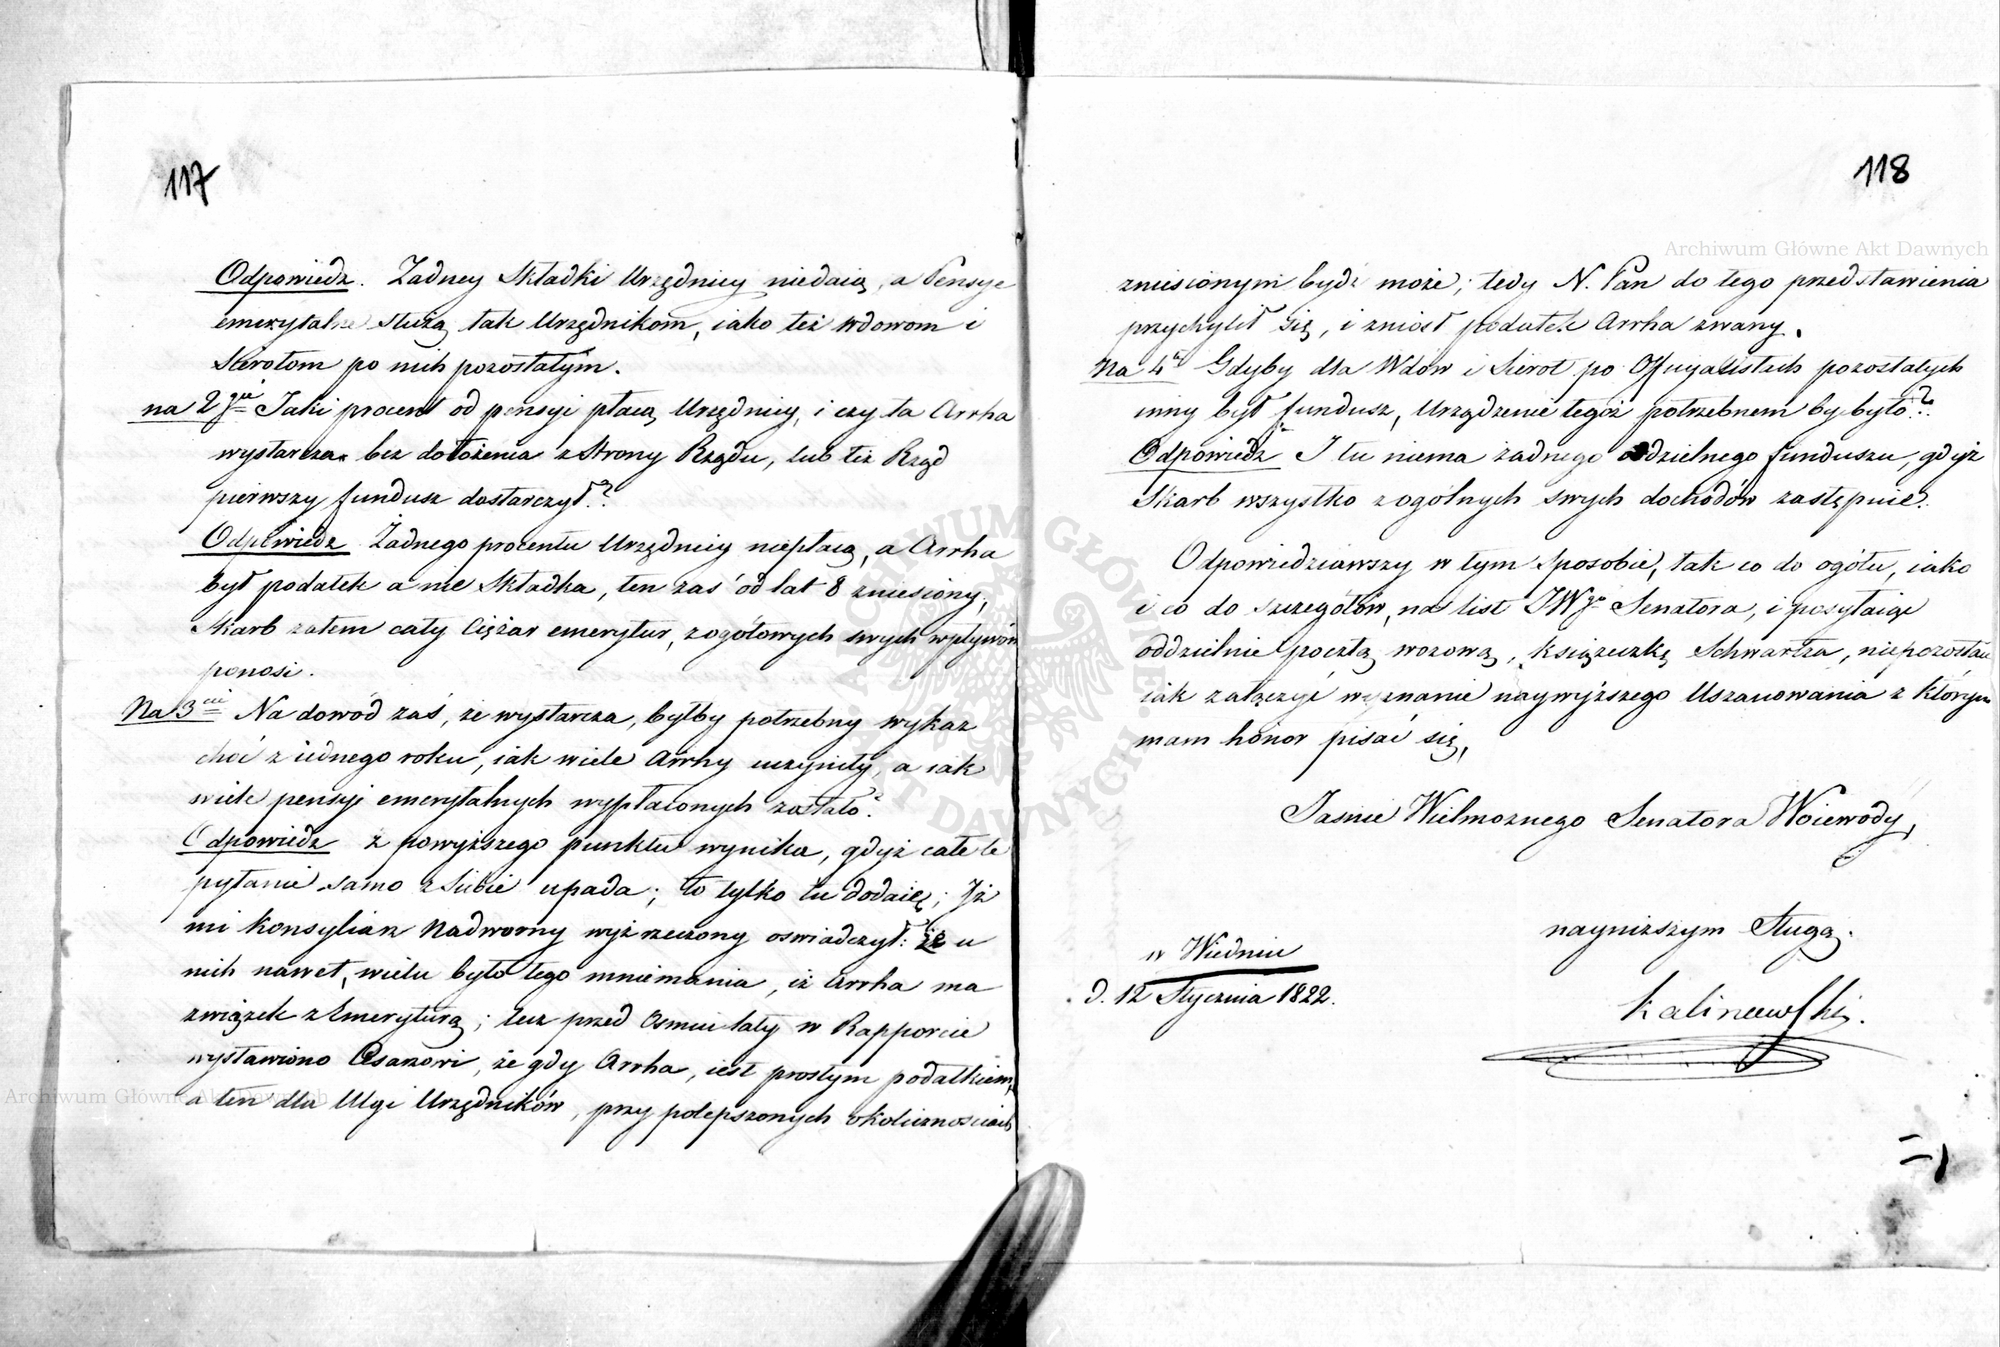 117
Odpowiedz. Żadney Składki Urzędnicy niedaią, a Pensye
emerytalne służą tak Urzędnikom, iako też wdowom i
Sierotom po nich pozostałym.
na 2gie Jaki procent od pensyi płacą Urzędnicy, i czy ta Arrha
wystarcza bez dołożenia z strony Rządu, lub też Rząd
pierwszy fundusz dostarczył?
Odpowiedz Żadnego procentu Urzędnicy niepłacą, a Arrha
był podatek a nie Składka, ten zaś od lat 8 zniesiony,
Skarb zatem cały Ciężar emerytur, z ogółowych swych wpływów
ponosi.
Na 3cie Na dowód zaś, że wystarcza, byłby potrzebny wykaz
choć z iednego roku, iak wiele Arrhy uczyniły, a iak
wiele pensyi emerytalnych wypłaconych zostało?
Odpowiedz z powyższego punktu wynika, gdyż całe te
pytanie samo z siebie upada; to tylko tu dodaię; Iż
mi Konsyliarz Nadworny wyż rzeczony oswiadczył: że u
nich nawet, wielu było tego mniemania, iż Arrha ma
związek z Emeryturą; lecz przed Osmiu laty w Rapporcie
wystawiono Cesarzowi, że gdy Arrha, iest prostym podatkiem,
a ten dla Ulgi Urzędników, przy polepszonych okolicznosciach
118
zniesionym bydź może; tedy N. Pan do tego przedstawienia
przychylił się, i zniosł podatek Arrha zwany.
Na 4te Gdyby dla Wdów i Sierot po Officyalistach pozostałych
inny był fundusz, Urządzenie tegoż potrzebnem by było?
Odpowiedz I tu niema żadnego oddzielnego funduszu, gdyż
Skarb wszystko z ogólnych swych dochodów zastępuie.
Odpowiedziawszy w tym sposobie, tak co do ogółu, iako
i co do szczegółów, na list JWgo Senatora, i posyłaiąc
oddzielnie pocztą wozową, książeczkę Schwartza, niepozostaie
iak załączyć wyznanie naywyższego Uszanowania z którym
mam honor pisać się,
Jasnie Wielmoznego Senatora Woiewody,
naynizszym Sługą.
w Wiedniu
d. 12 Stycznia 1822.
Kalinowski.
Archiwum Główne Akt Dawnych
Archiwum Główne Akt Dawnych
ARCHIWUM GŁÓWNE AKT DAWNYCH